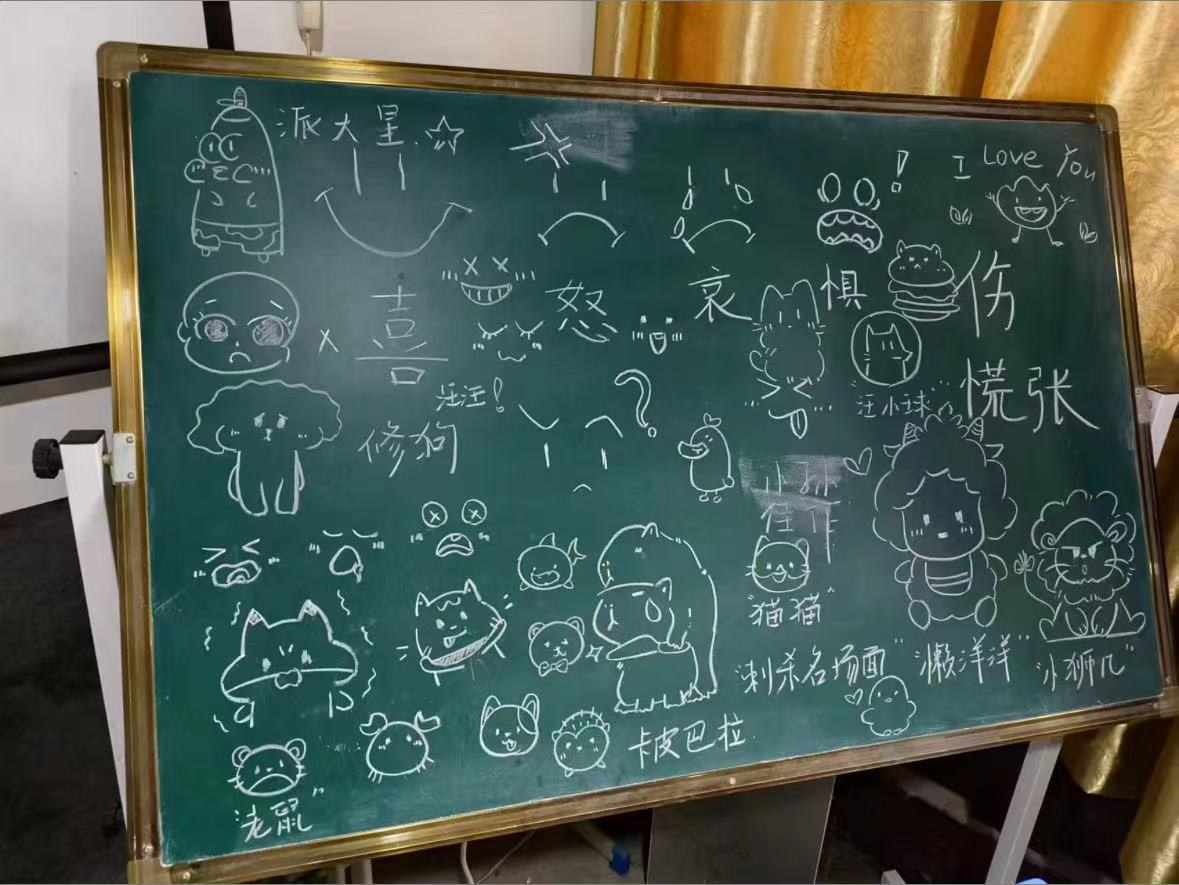 派大星
I Love You
喜
怒
哀
惧
伤
汪汪!
修狗
?
"汪小球"
慌张
佳作
"猫猫"
"刺杀名场面"
"懒洋洋"
"小狮几"
卡皮巴拉
"老鼠"